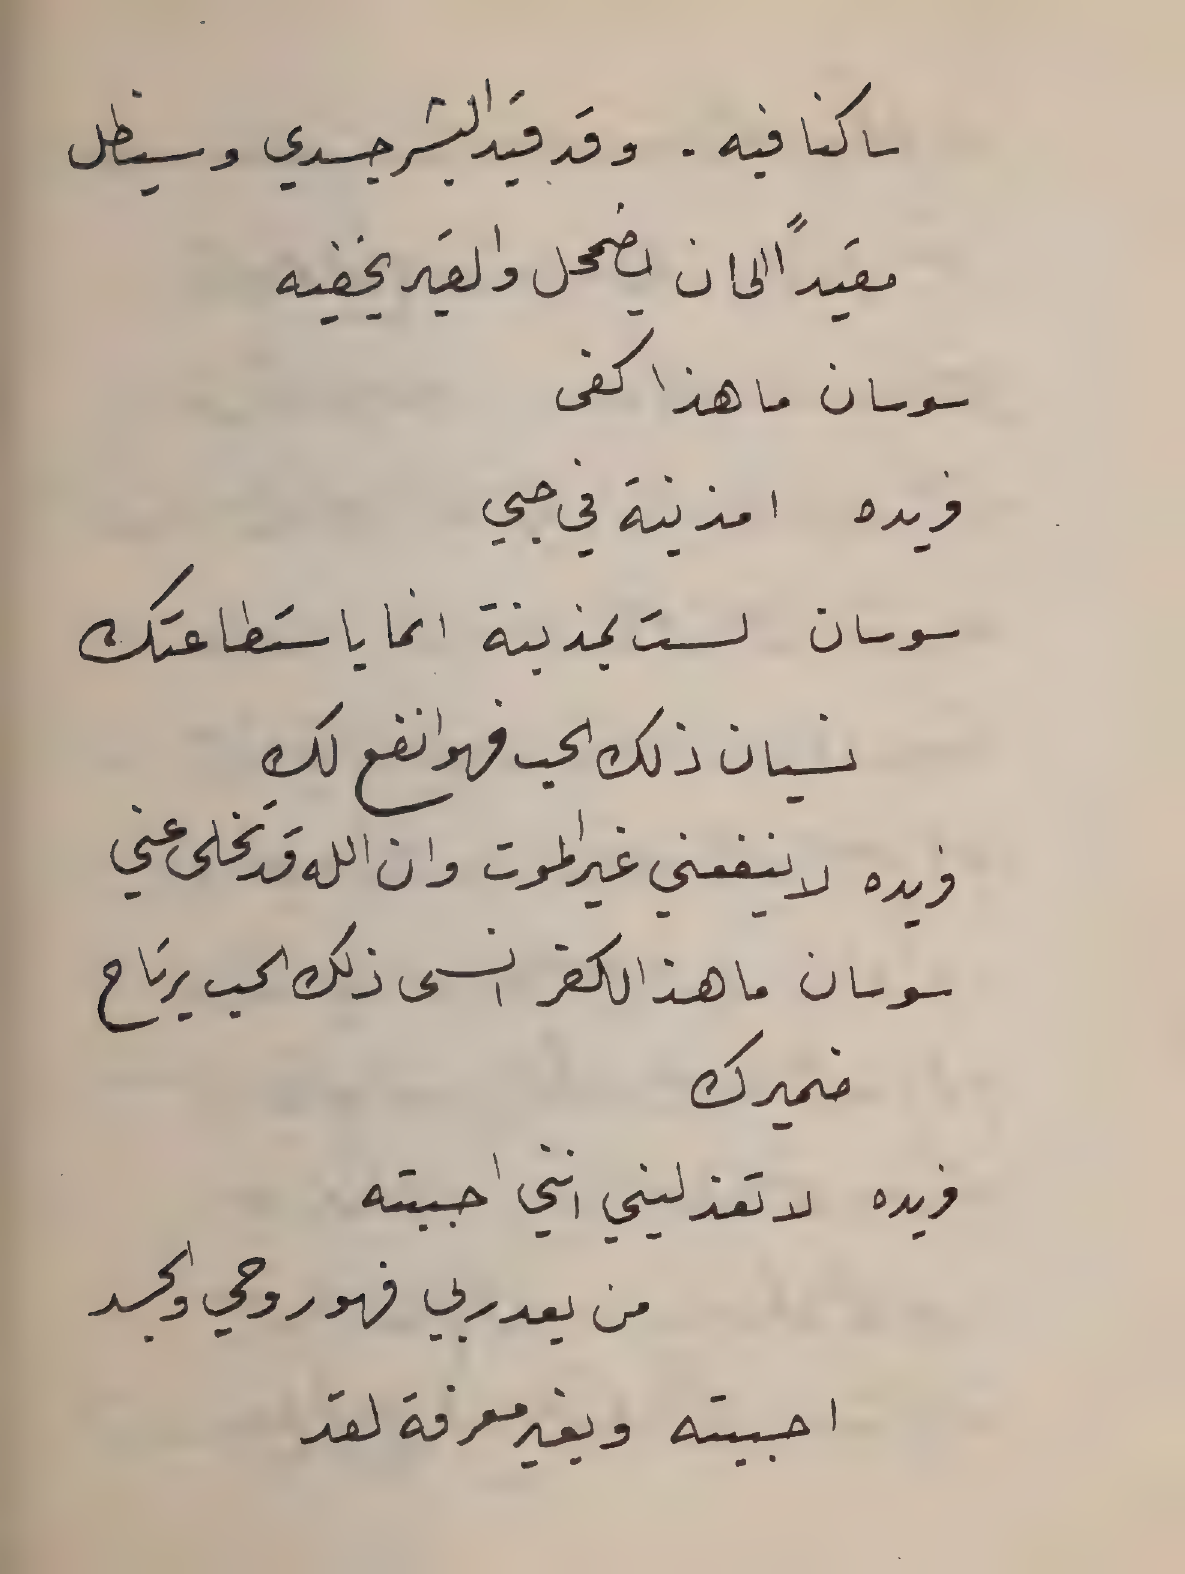 ساكنا فيه . وقد قيد البشر جسدي وسيظل
مقيداً الى ان يضمحل والقبر يخفيه
سوسان ما هذا كفى
فريده امذنبة في حبي
سوسان لست بمذنبة انما باستطاعتك
نسيان ذلك الحب فهو انفع لك
فريده لا ينفعني غير الموت وان الله قد تخلى عني
سوسان ما هذا الكفر انسى ذلك الحب يرتاح
ضميرك
فريده لا تعذليني انني احببته
من بعد ربي فهو روحي والجسد
احببته وبغير معرفة لقد